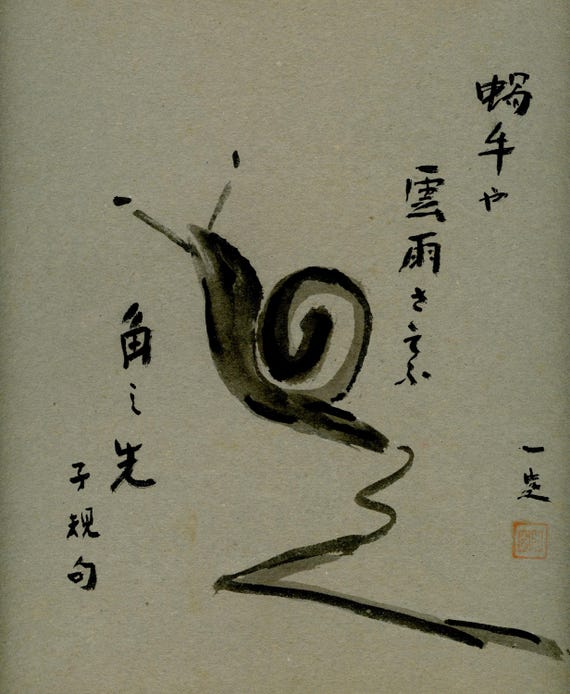 蝸牛や
雲雨さそふ
角之先
子規句